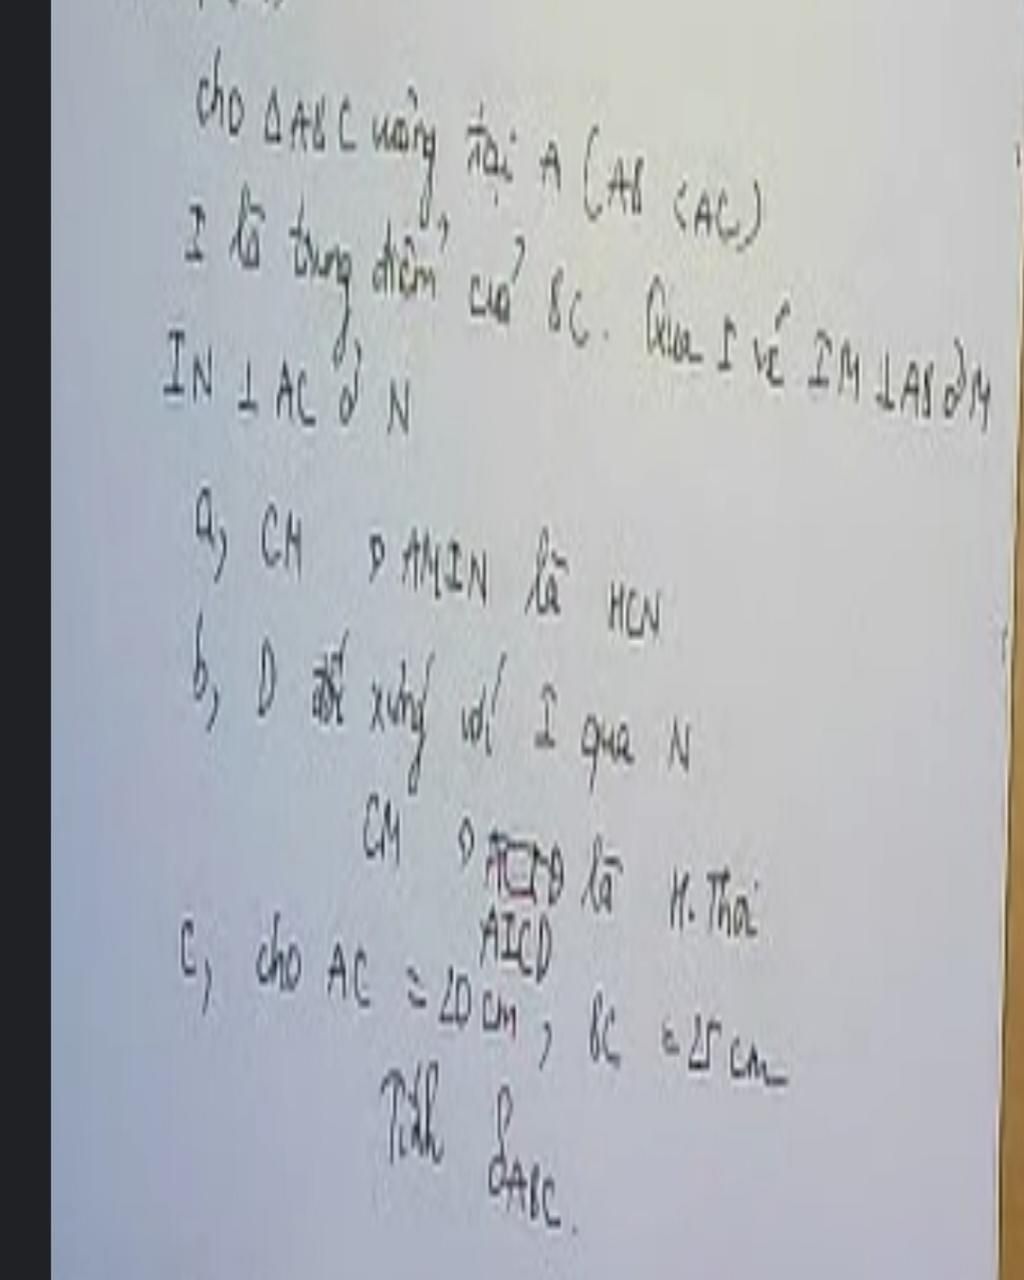 cho ΔABC vuông tại A (AB < AC)
I là trung điểm của BC. Qua I vẽ IM ⊥ AB ở M
IN ⊥ AC ở N
a, CM AMIN là HCN
b, D đối xứng với I qua N
CM là H. Thoi
AICD
c, cho AC = 20 cm, BC = 25 cm
Tính SABC.